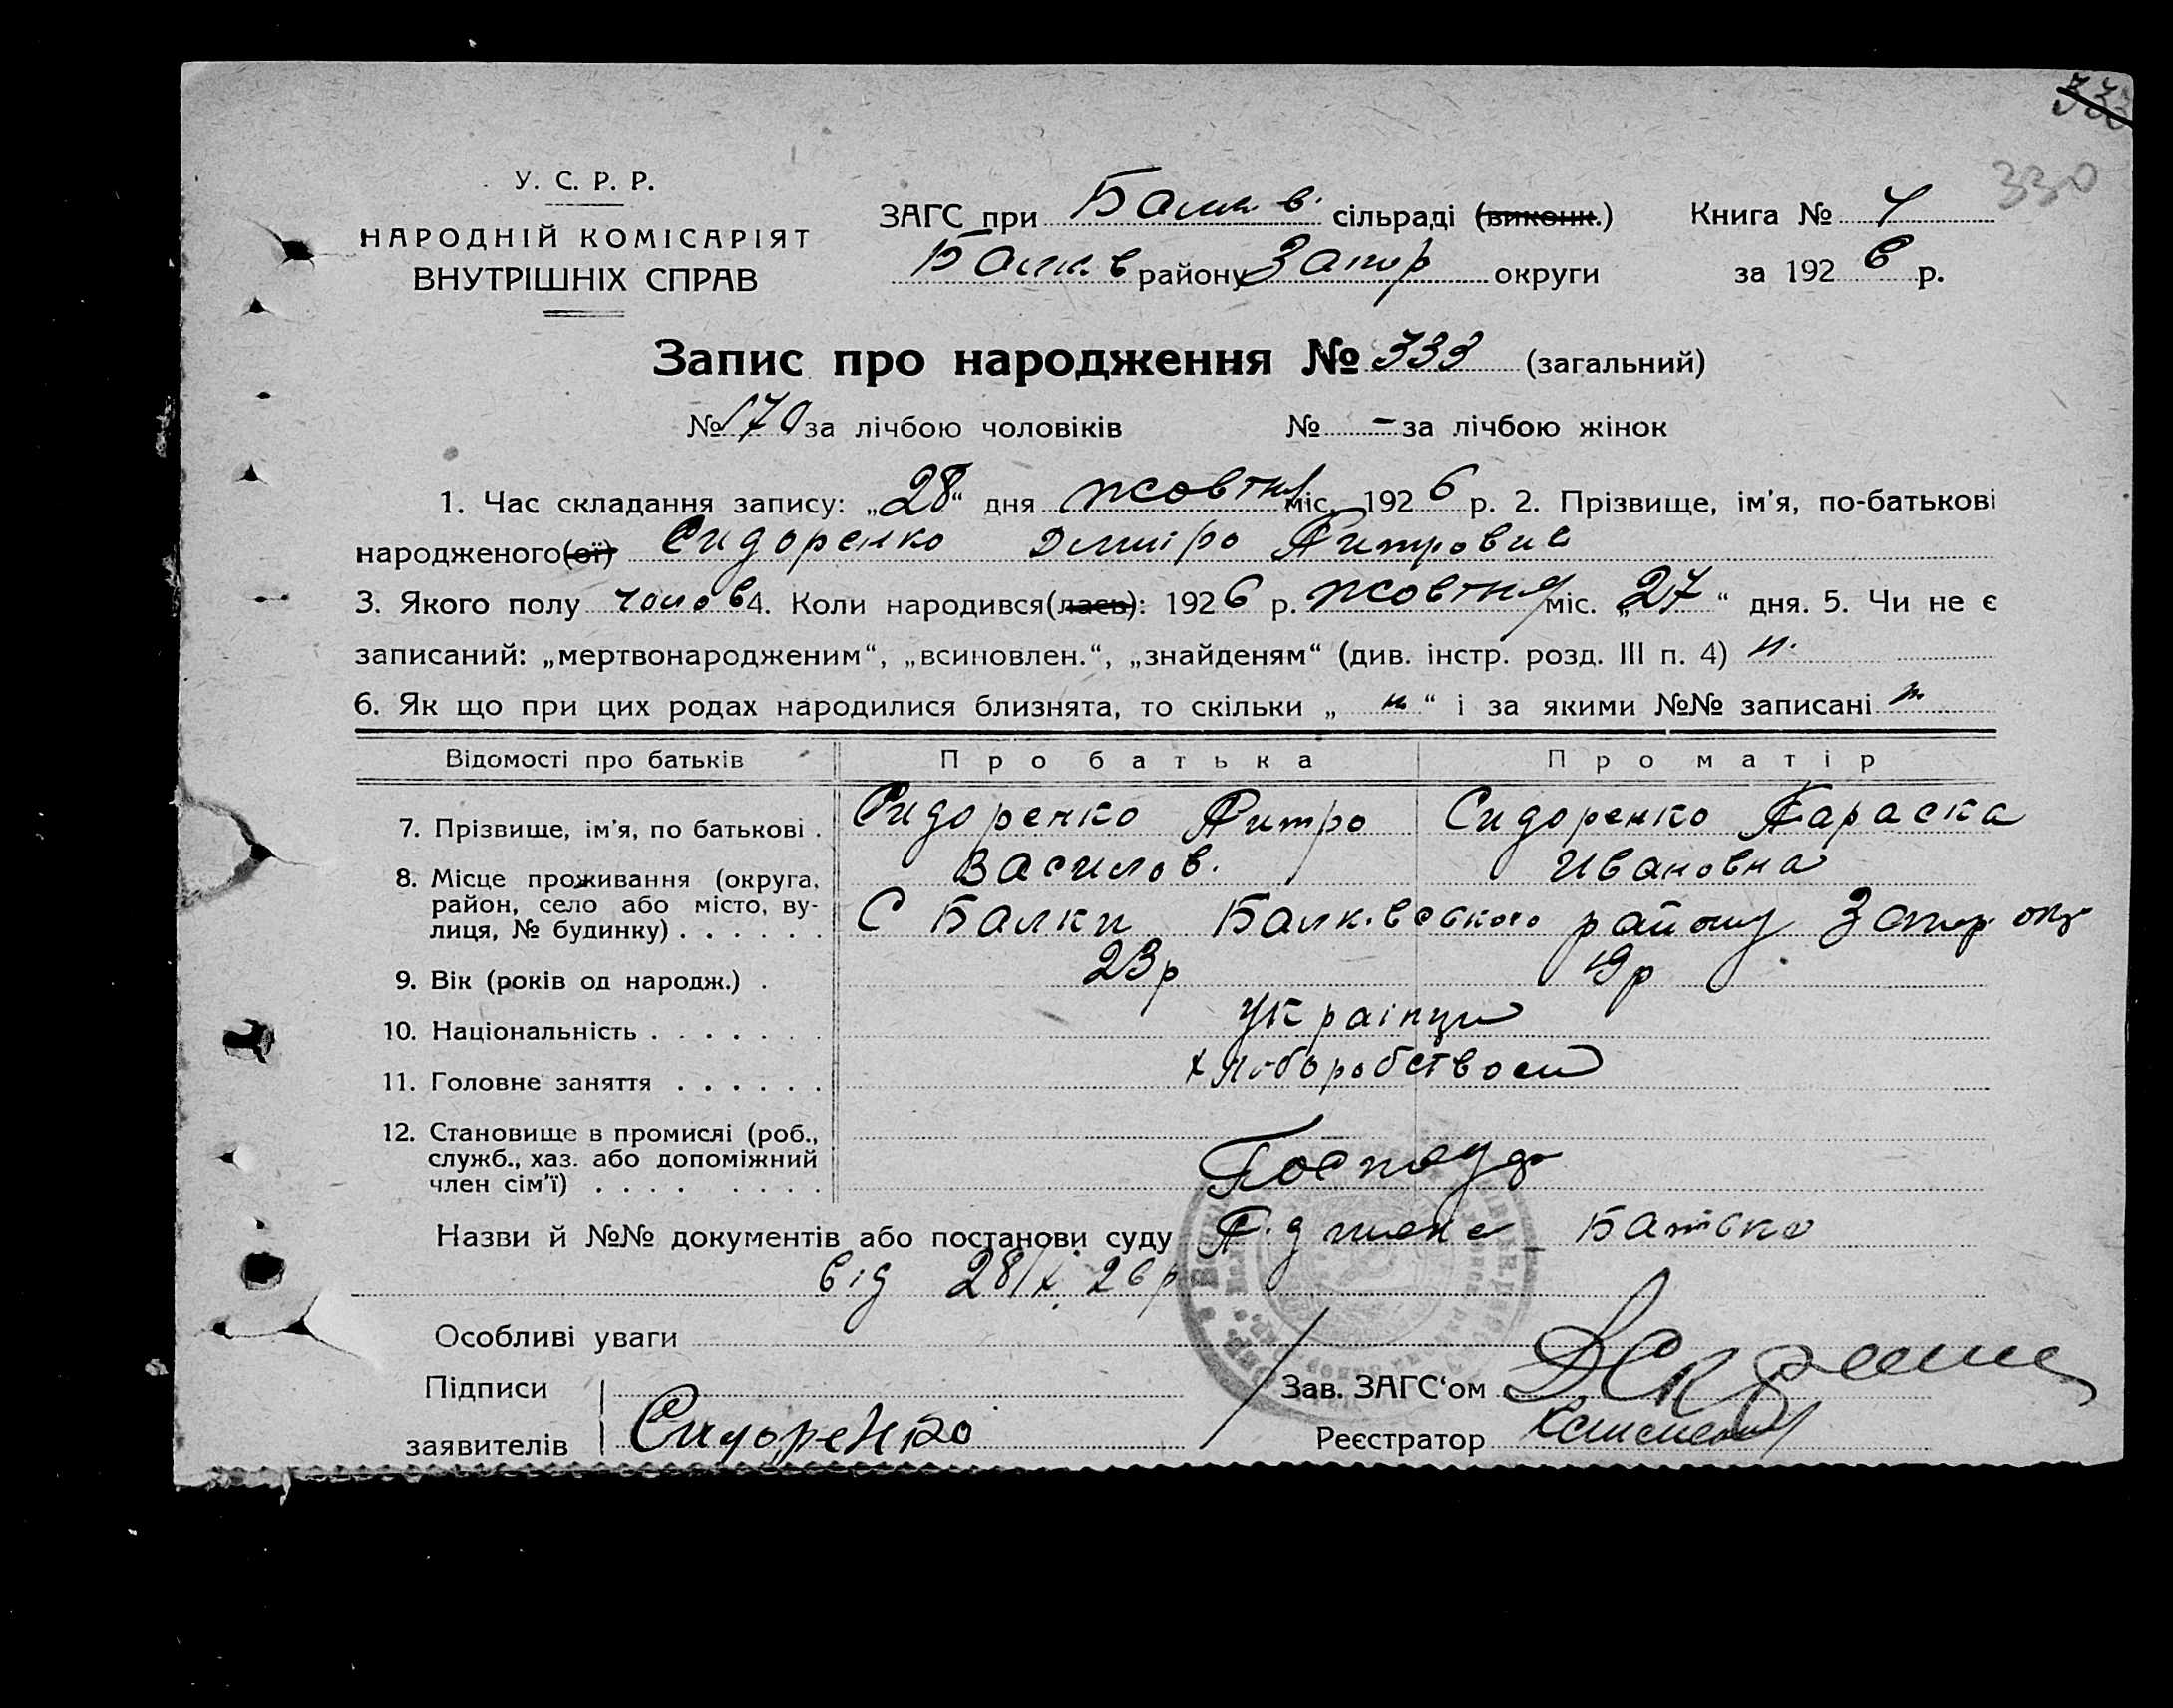 333
330
У. С. Р. Р.
НАРОДНІЙ КОМІСАРІЯТ
ВНУТРІШНІХ СПРАВ
ЗАГС при Балк. в. сільраді (виконк.)
Балк в району Запор округи
Книга № 4
за 1926 р.
Запис про народження № 333 (загальний)
№ 170 за лічбою чоловіків № - за лічбою жінок
1. Час складання запису: „28“ дня жовтня міс. 1926 р. 2. Прізвище, ім'я, по-батькові
народженого(ої) Сидоренко Дмитро
3. Якого полу чолов 4. Коли народився(лась): 1926 р. жовтня міс. „27“ дня. 5. Чи не є
записаний: „мертвонародженим“, „всиновлен.“, „знайденям“ (див. інстр. розд. III п. 4) н.
6. Як що при цих родах народилися близнята, то скільки „ н “ і за якими №№ записані н
Відомості про батьків Про батька Про матір
7. Прізвище, ім'я, по батькові . Сидоренко Сидоренко Параска
Василов. Ивановна
8. Місце проживання (округа,
район, село або місто, ву-
лиця, № будинку) . . . . . . С Балки Балк.вського району Запор окр
9. Вік (років од народж.) . 23 р 19 р
10. Національність . . . . . . . Українци
11. Головне заняття . . . . . . хліборобством
12. Становище в промислі (роб.,
служб., хаз. або допоміжний
член сім'ї) . . . . . . . .
Назви й №№ документів або постанови суду Батька
від 28/X 26 р
Особливі уваги
Підписи
заявителів Сидоренко
Зав. ЗАГС'ом
Реєстратор